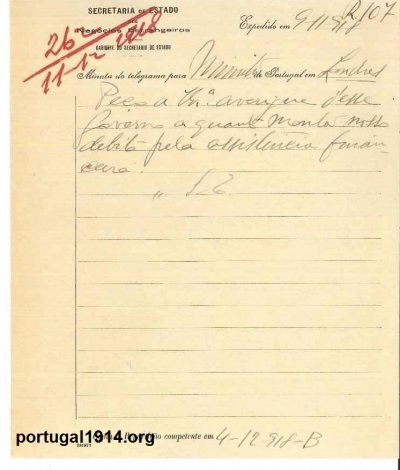 R.107
SECRETARIA DE ESTADO
DOS
Negócios Estrangeiros
GABINETE DO SECRETARIO DE ESTADO
Expedido em 9-11-918
26
11-12-1918
Minuta do telegrama para Ministro de Portugal em Londres
Peço a V. averigue d'esse
Governo a quanto monta nosso
debito pela assistencia finan-
ceira.
competente em 4-12-918-B
portugal1914.org